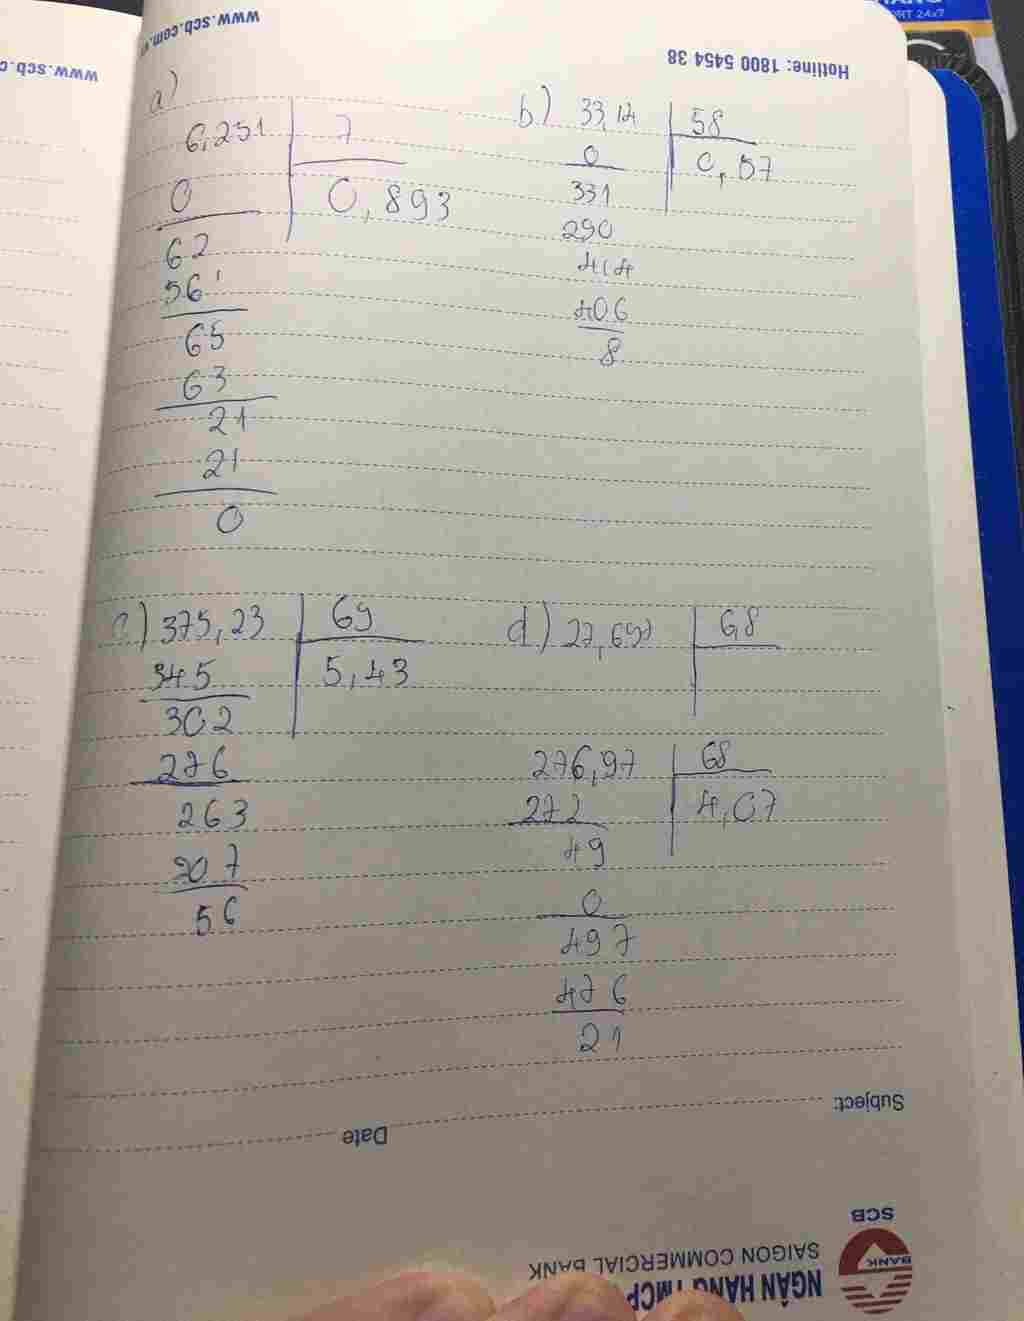 www.scb.com.v
www.scb.c
Hotline: 1800 5454 38
RT 24x7
a)
6,251 7
0 0,893
62
56
65
63
21
21
0
b) 33,14 58
0 0,57
331
290
414
406
8
c) 375,23 69
345 5,43
302
276
263
207
56
d) 27,697 68
276,97 68
272 4,07
49
0
497
476
21
Subject:
Date
SCB
BANK
SAIGON COMMERCIAL BANK
NGÂN HÀNG TMCP